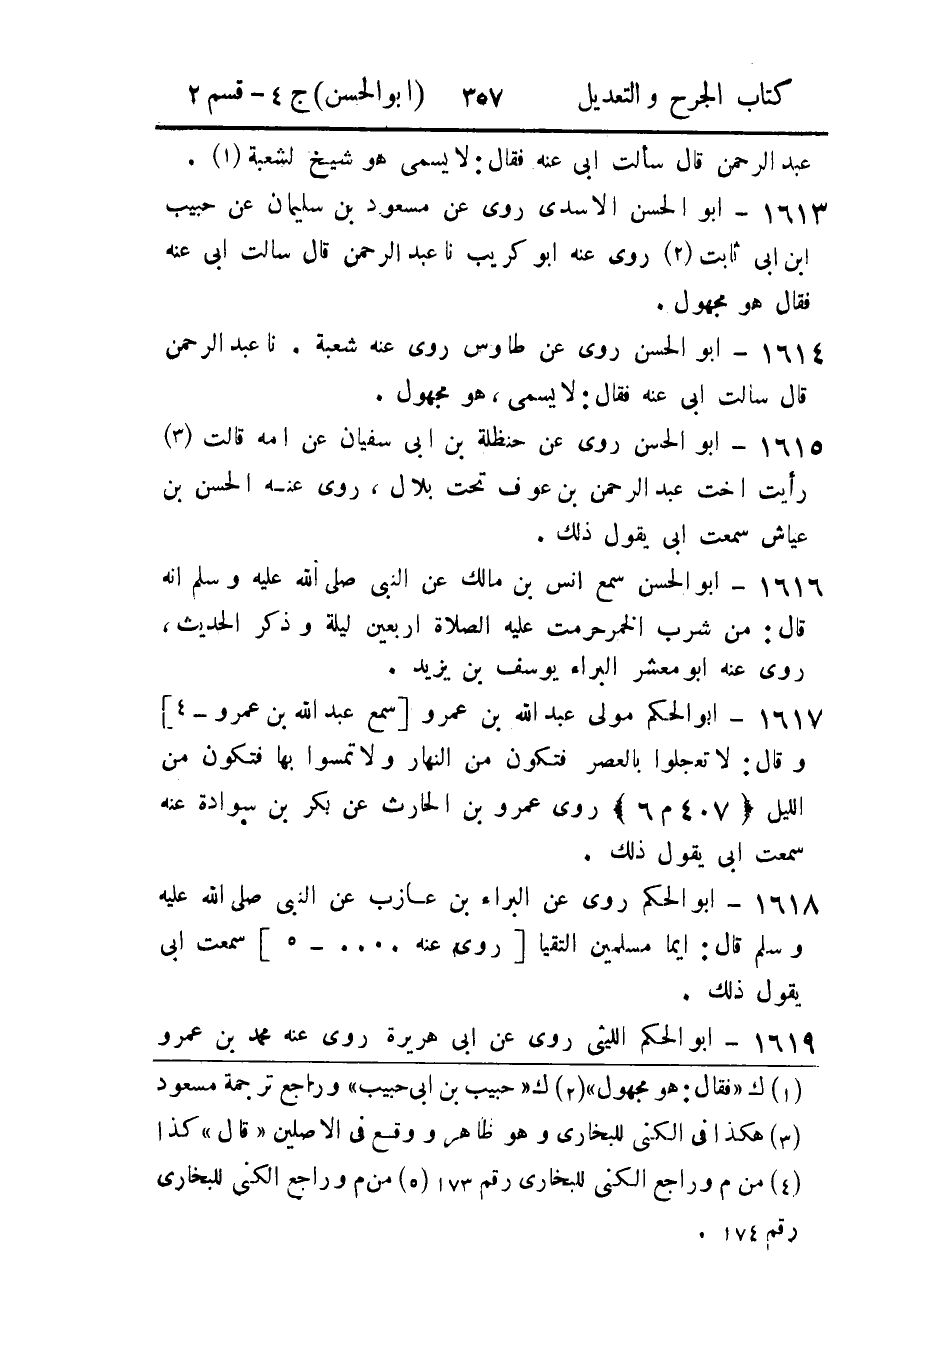 كتاب الجرح و التعديل ٣٥٧ (ابو الحسن) ج ٤ – قسم ٢
عبد الرحمن قال سألت ابى عنه فقال: لا يسمى هو شيخ لشعبة (١) .
١٦١٣ – ابو الحسن الاسدى روى عن مسعود بن سليمان عن حبيب
ابن ابى ثابت (٢) روى عنه ابو كريب نا عبد الرحمن قال سالت ابى عنه
فقال هو مجهول .
١٦١٤ – ابو الحسن روى عن طاوس روى عنه شعبة . نا عبد الرحمن
قال سالت ابى عنه فقال: لا يسمى ، هو مجهول .
١٦١٥ – ابو الحسن روى عن حنظلة بن ابى سفيان عن امه قالت (٣)
رأيت اخت عبد الرحمن بن عوف تحت بلال ، روى عنه الحسن بن
عياش سمعت ابى يقول ذلك .
١٦١٦ – ابو الحسن سمع انس بن مالك عن النبى صلى الله عليه و سلم انه
قال: من شرب الخمر حرمت عليه الصلاة اربعين ليلة و ذكر الحديث ،
روى عنه ابو معشر البراء يوسف بن يزيد .
١٦١٧ – ابو الحكم مولى عبد الله بن عمرو [سمع عبد الله بن عمرو – ٤]
و قال: لا تعجلوا بالعصر فتكون من النهار و لا تمسوا بها فتكون من
الليل ﴿ ٤٠٧ م ٦ ﴾ روى عمرو بن الحارث عن بكر بن سوادة عنه
سمعت ابى يقول ذلك .
١٦١٨ – ابو الحكم روى عن البراء بن عازب عن النبى صلى الله عليه
و سلم قال: ايما مسلمين التقيا [ روى عنه .... – ٥ ] سمعت ابى
يقول ذلك .
١٦١٩ – ابو الحكم الليثى روى عن ابى هريرة روى عنه محمد بن عمرو
(١) ك «فقال: هو مجهول» (٢) ك «حبيب بن ابى حبيب» و راجع ترجمة مسعود
(٣) هكذا فى الكنى للبخارى و هو ظاهر و وقع فى الاصلين « قال » كذا
(٤) من م و راجع الكنى للبخارى رقم ١٧٣ (٥) من م و راجع الكنى للبخارى
رقم ١٧٤ .